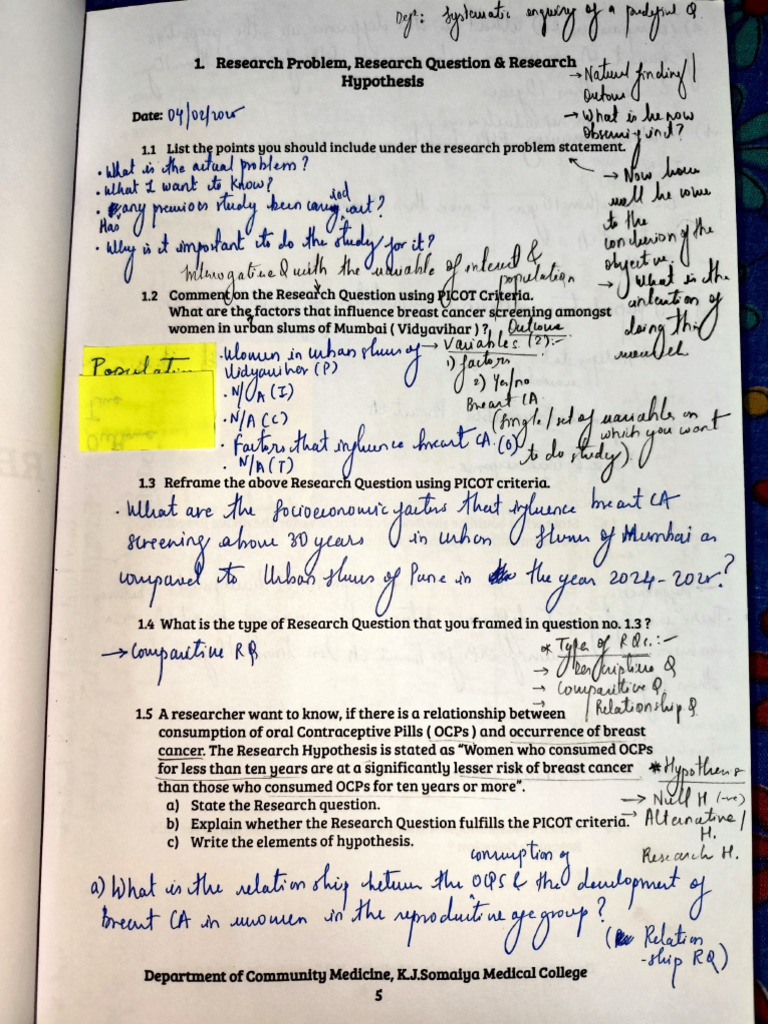 Def": Systematic enquiry of a predefined Q.
1. Research Problem, Research Question & Research
Hypothesis
→ Natural finding /
Outcome
→ What is he now
Observing in it?
Date: 04/02/2025
1.1 List the points you should include under the research problem statement.
• What is the actual problem?
• What I want to know?
• Has any previous study been carried out?
• Why is it important to do the study for it?
→ Now how
well he come
to the
conclusion of the
objective.
→ What is the
intention of
doing this
research
Interrogative Q with the variable of interest &
population
1.2 Comment on the Research Question using PICOT Criteria.
What are the factors that influence breast cancer screening amongst
women in urban slums of Mumbai ( Vidyavihar ) ?
Outcome
Population
• Women in urban slums of
Vidyavihar (P)
• N/A (I)
• N/A (C)
• Factors that influence breast CA. (O)
• N/A (T)
→ Variables (2):-
1) factors
2) Yes/no
Breast CA
(Single / set of variables on
which you want
to do study).
1.3 Reframe the above Research Question using PICOT criteria.
• What are the socioeconomic factors that influence breast CA
screening above 30 years in urban slums of Mumbai as
compared to Urban slums of Pune in the year 2024-2025?
1.4 What is the type of Research Question that you framed in question no. 1.3 ?
→ Comparitive RQ
* Types of RQs.:-
→ Descriptive Q
→ Comparitive Q.
→ Relationship Q.
1.5 A researcher want to know, if there is a relationship between
consumption of oral Contraceptive Pills ( OCPs ) and occurrence of breast
cancer. The Research Hypothesis is stated as "Women who consumed OCPs
for less than ten years are at a significantly lesser risk of breast cancer
than those who consumed OCPs for ten years or more".
a) State the Research question.
b) Explain whether the Research Question fulfills the PICOT criteria.
c) Write the elements of hypothesis.
* Hypothesis
→ Null H (-ve)
→ Alternative /
H.
Research H.
consumption of
a) What is the relationship between the OCPS & the development of
breast CA in women in the reproductive age group?
(Relation
-ship RQ)
Department of Community Medicine, K.J.Somaiya Medical College
5